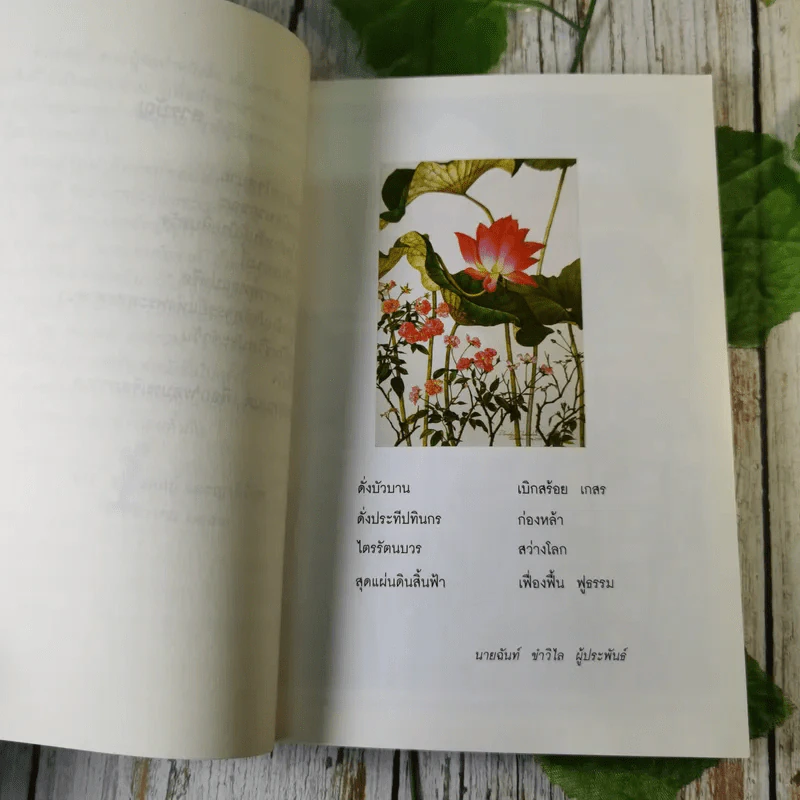 ดั่งบัวบาน เบิกสร้อย เกสร
ดั่งประทีปทินกร ก่องหล้า
ไตรรัตนบวร สว่างโลก
สุดแผ่นดินสิ้นฟ้า เฟื่องฟื้น ฟูธรรม
นายฉันท์ ขำวิไล ผู้ประพันธ์